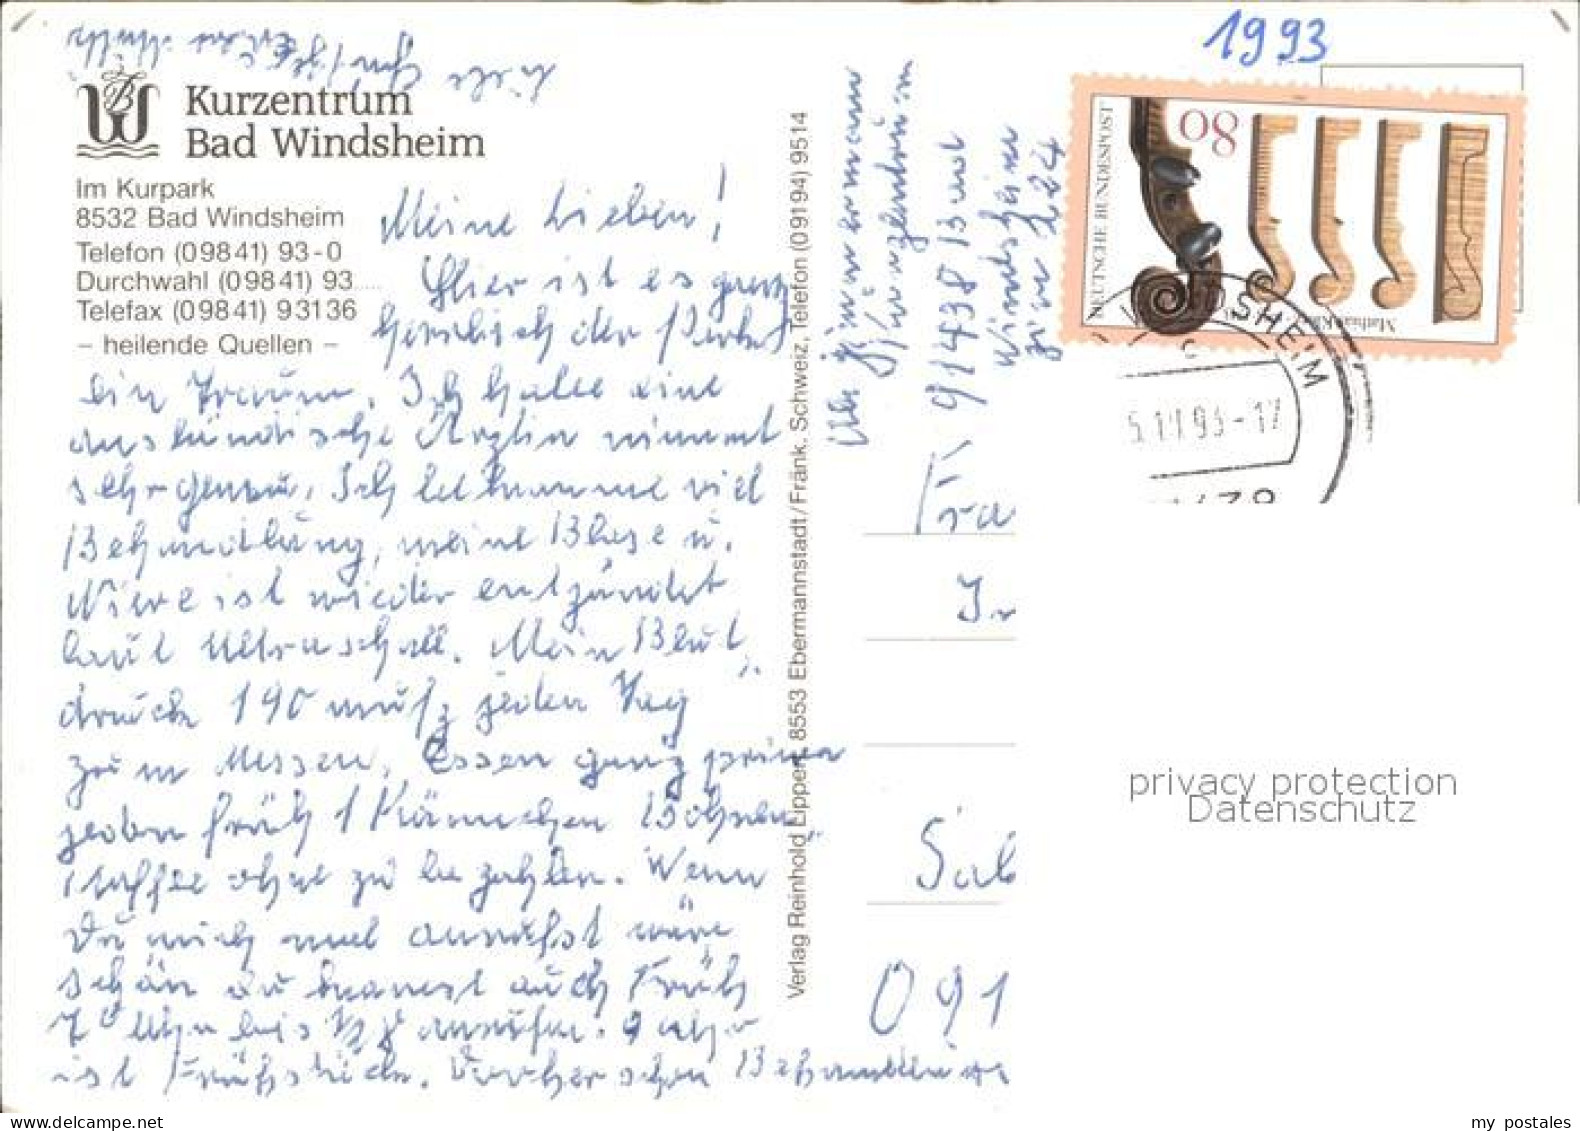 1993
Kurzentrum
Bad Windsheim
Im Kurpark
8532 Bad Windsheim
Telefon (09841) 93-0
Durchwahl (09841) 93.....
Telefax (09841) 93136
– heilende Quellen –
Meine Lieben!
Hier ist es ganz
herrlich der Park
ein Traum. Ich habe eine
ausländische Ärztin nimmt
sehr genau. Ich bekomme viel
Behandlung, meine Blase u.
Niere ist wieder entzündet
laut Ultraschall. Mein Blut
druck 190 muß jeden Tag
zum Messen. Essen ganz prima
jeden früh 1 Kännchen Bohnen
kaffee ohne zu bezahlen. Wenn
Du mich mal anrufst wäre
schön du kannst auch Früh
7 Uhr bis anrufen.
ist Frühstück. Vorher schon Behandlung
Verlag Reinhold Lippert, 8553 Ebermannstadt/Fränk. Schweiz, Telefon (09194) 9514
Kurzentrum
91438 Bad
Windsheim
DEUTSCHE BUNDESPOST
80
5.11.93-17
Fra
Sab
091
privacy protection
Datenschutz
my postales